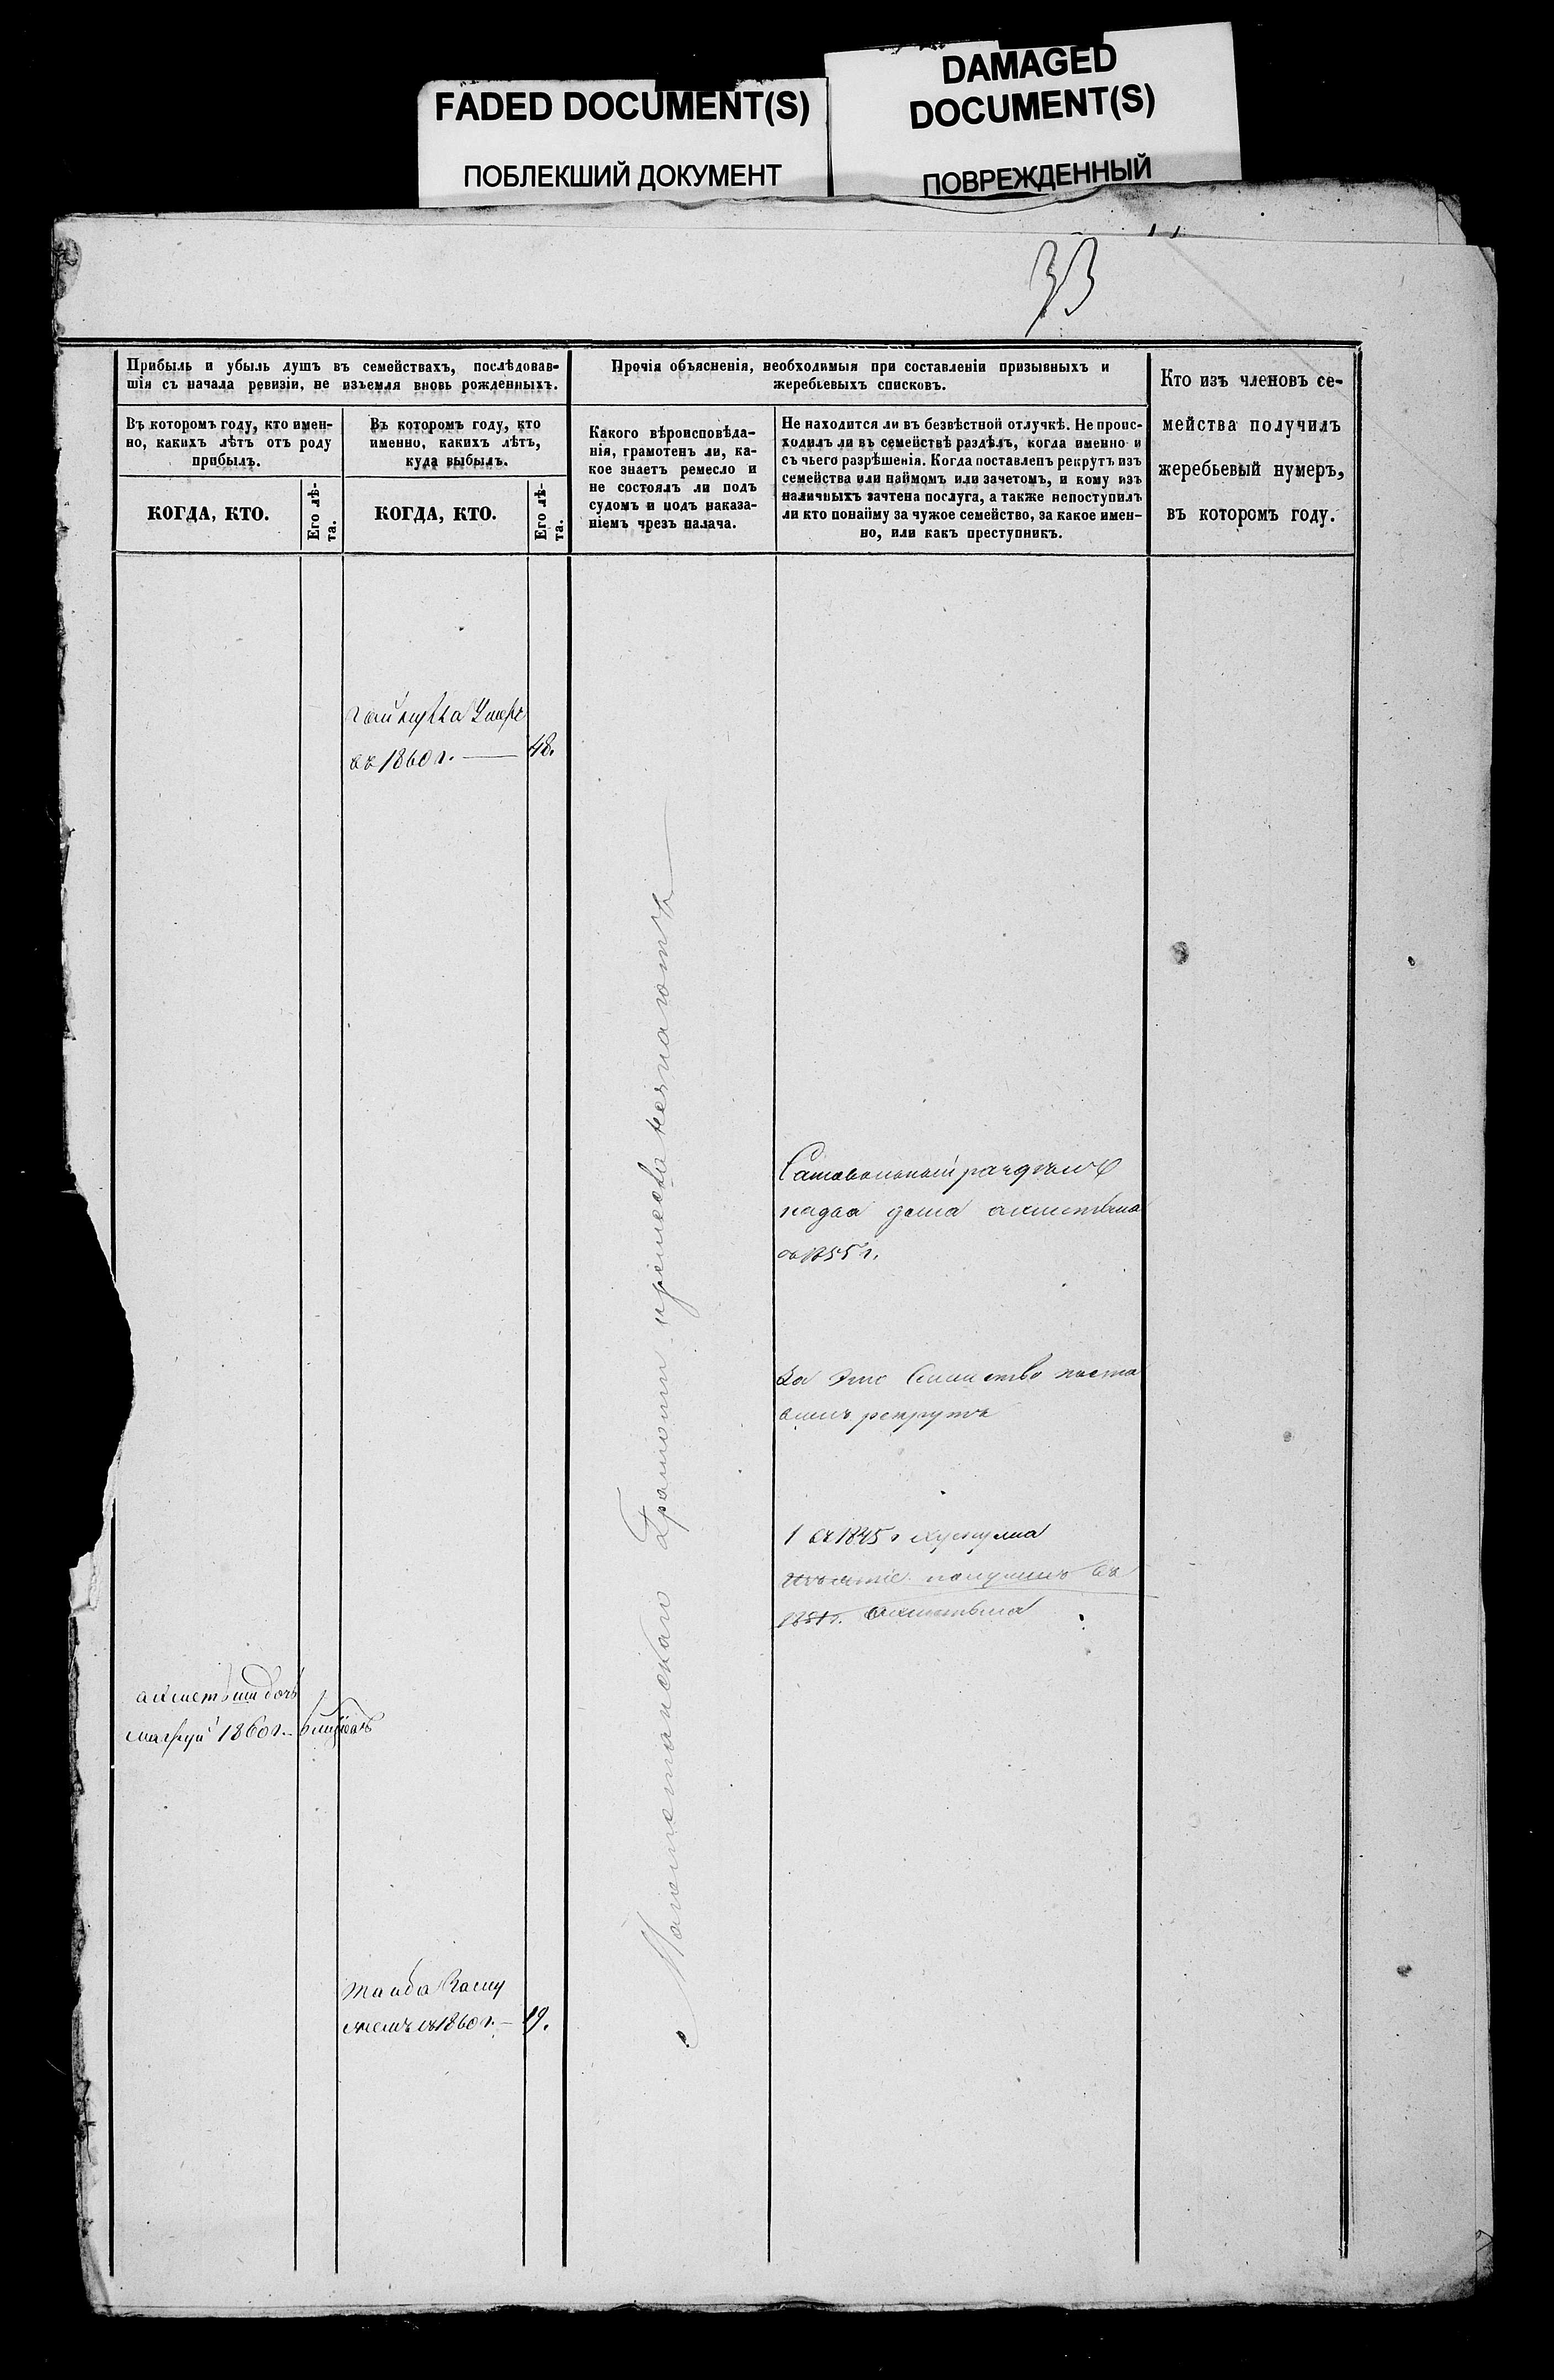 FADED DOCUMENT(S)
ПОБЛЕКШИЙ ДОКУМЕНТ
DAMAGED
DOCUMENT(S)
ПОВРЕЖДЕННЫЙ
33
Прибыль и убыль душъ въ семействахъ, послѣдовав-
шія съ начала ревизіи, не изъемля вновь рожденныхъ.
Въ которомъ году, кто имен-
но, какихъ лѣтъ отъ роду
прибылъ.
КОГДА, КТО.
Его лѣ-
та.
Въ которомъ году, кто
именно, какихъ лѣтъ,
куда выбылъ.
КОГДА, КТО.
Его лѣ-
та.
Прочія объясненія, необходимыя при составленіи призывныхъ и
жеребьевыхъ списковъ.
Какого вѣроисповѣда-
нія, грамотенъ ли, ка-
кое знаетъ ремесло и
не состоялъ ли подъ
судомъ и подъ наказа-
ніемъ чрезъ палача.
Не находится ли въ безвѣстной отлучкѣ. Не проис-
ходилъ ли въ семействѣ раздѣлъ, когда именно и
съ чьего разрѣшенія. Когда поставленъ рекрутъ изъ
семейства или наймомъ или зачетомъ, и кому изъ
наличныхъ зачтена послуга, а также непоступилъ
ли кто понайму за чужое семейство, за какое имен-
но, или какъ преступникъ.
Кто изъ членовъ се-
мейства получилъ
жеребьевый нумеръ,
въ которомъ году.
Умеръ
въ 1860 г. — 48.
Магометанскаго Грамоти и ремесла незнаютъ
Самовольный раздѣлъ
на два дома ахметьяна
въ 1855 г.
За это Семиство поста
вленъ рекрутъ
1 въ 1845 г
получилъ въ
1851 г. ахметьяна
1860 г.
въ 1860 г. — 19.